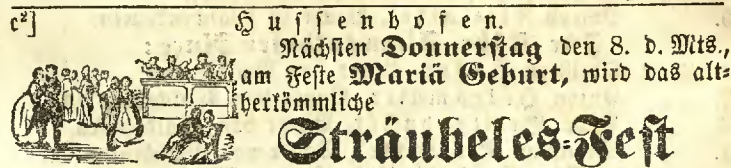 c²]
Hussenhofen.
Nächsten Donnerstag den 8. d. Mts.,
am Feste Mariä Geburt, wird das alt=
herkömmliche
Sträubeles=Fest